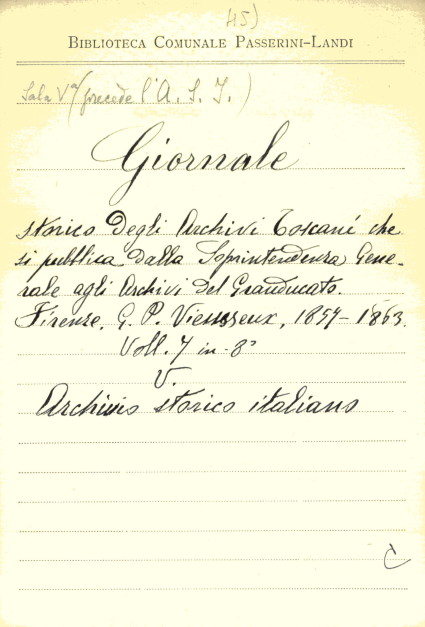 45)
BIBLIOTECA COMUNALE PASSERINI-LANDI
Sala Vª (precede l'A. S. I.)
Giornale
storico degli Archivi Toscani che
si pubblica dalla Soprintendenza Gene-
rale agli Archivi del Granducato.
Firenze, G. P. Vieusseux, 1857-1863.
Voll. 7 in-8°
V.
Archivio storico italiano
C